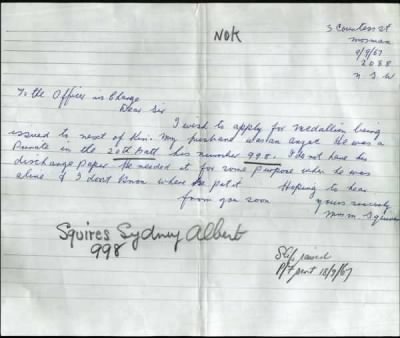 NOK
3 Countess St
Mosman
9/9/67
2088
N.S.W
To the Officer in Charge
Dear Sir
I wish to apply for Medallion being
issued to next of Kin. My husband was an Anzac He was a
Private in the 20th Batt his number 998. I do not have his
discharge Paper. He needed it for some purpose when he was
alive & I dont know where he put it Hoping to hear
from you soon Yours sincerely
M Squires
Squires Sydney Albert
998
13/9/67